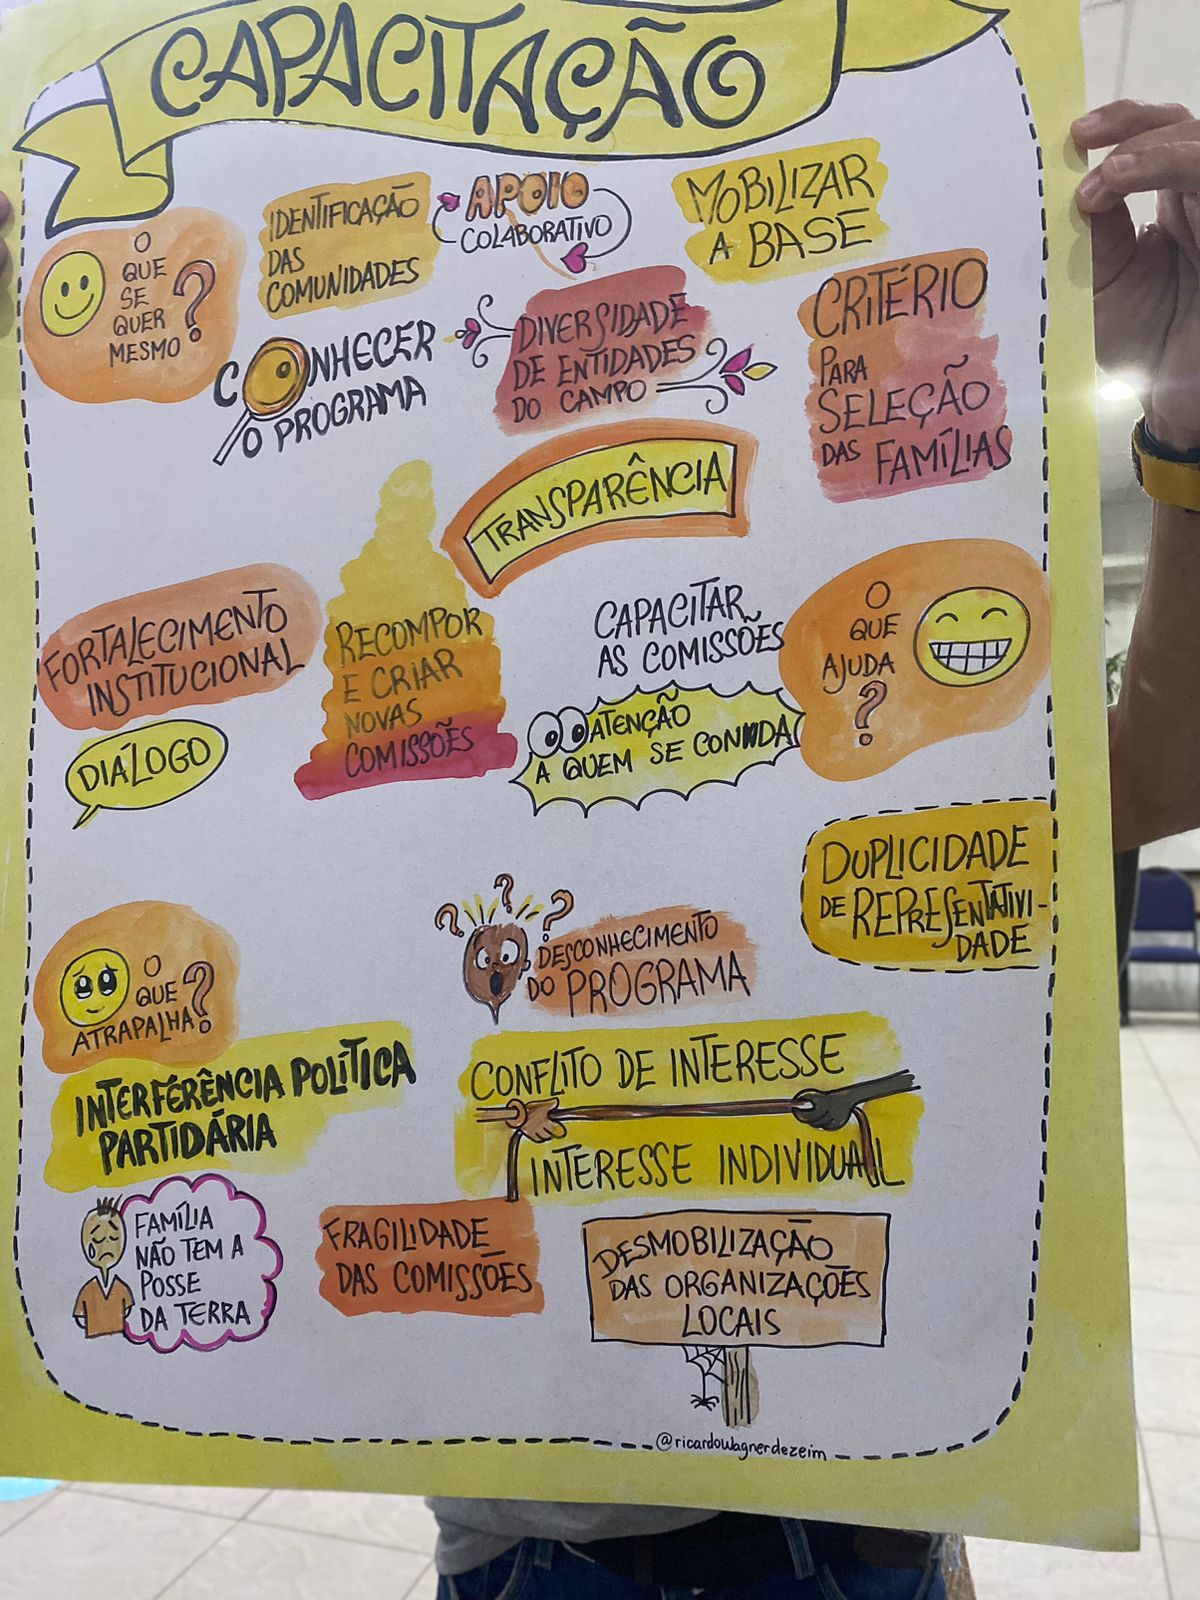 CAPACITAÇÃO
O
QUE
SE
QUER
MESMO ?
IDENTIFICAÇÃO
DAS
COMUNIDADES
APOIO
COLABORATIVO
MOBILIZAR
A BASE
CONHECER
O PROGRAMA
DIVERSIDADE
DE ENTIDADES
DO CAMPO
CRITÉRIO
PARA
SELEÇÃO
DAS FAMÍLIAS
TRANSPARÊNCIA
FORTALECIMENTO
INSTITUCIONAL
DIÁLOGO
RECOMPOR
E CRIAR
NOVAS
COMISSÕES
CAPACITAR
AS COMISSÕES
ATENÇÃO
A QUEM SE CONVIDA
O
QUE
AJUDA
?
DUPLICIDADE
DE REPRESENTATIVI-
DADE
O
QUE
ATRAPALHA?
? ? ?
DESCONHECIMENTO
DO PROGRAMA
INTERFERÊNCIA POLÍTICA
PARTIDÁRIA
CONFLITO DE INTERESSE
INTERESSE INDIVIDUAL
FAMÍLIA
NÃO TEM A
POSSE
DA TERRA
FRAGILIDADE
DAS COMISSÕES
DESMOBILIZAÇÃO
DAS ORGANIZAÇÕES
LOCAIS
@ricardowagnerdezeim